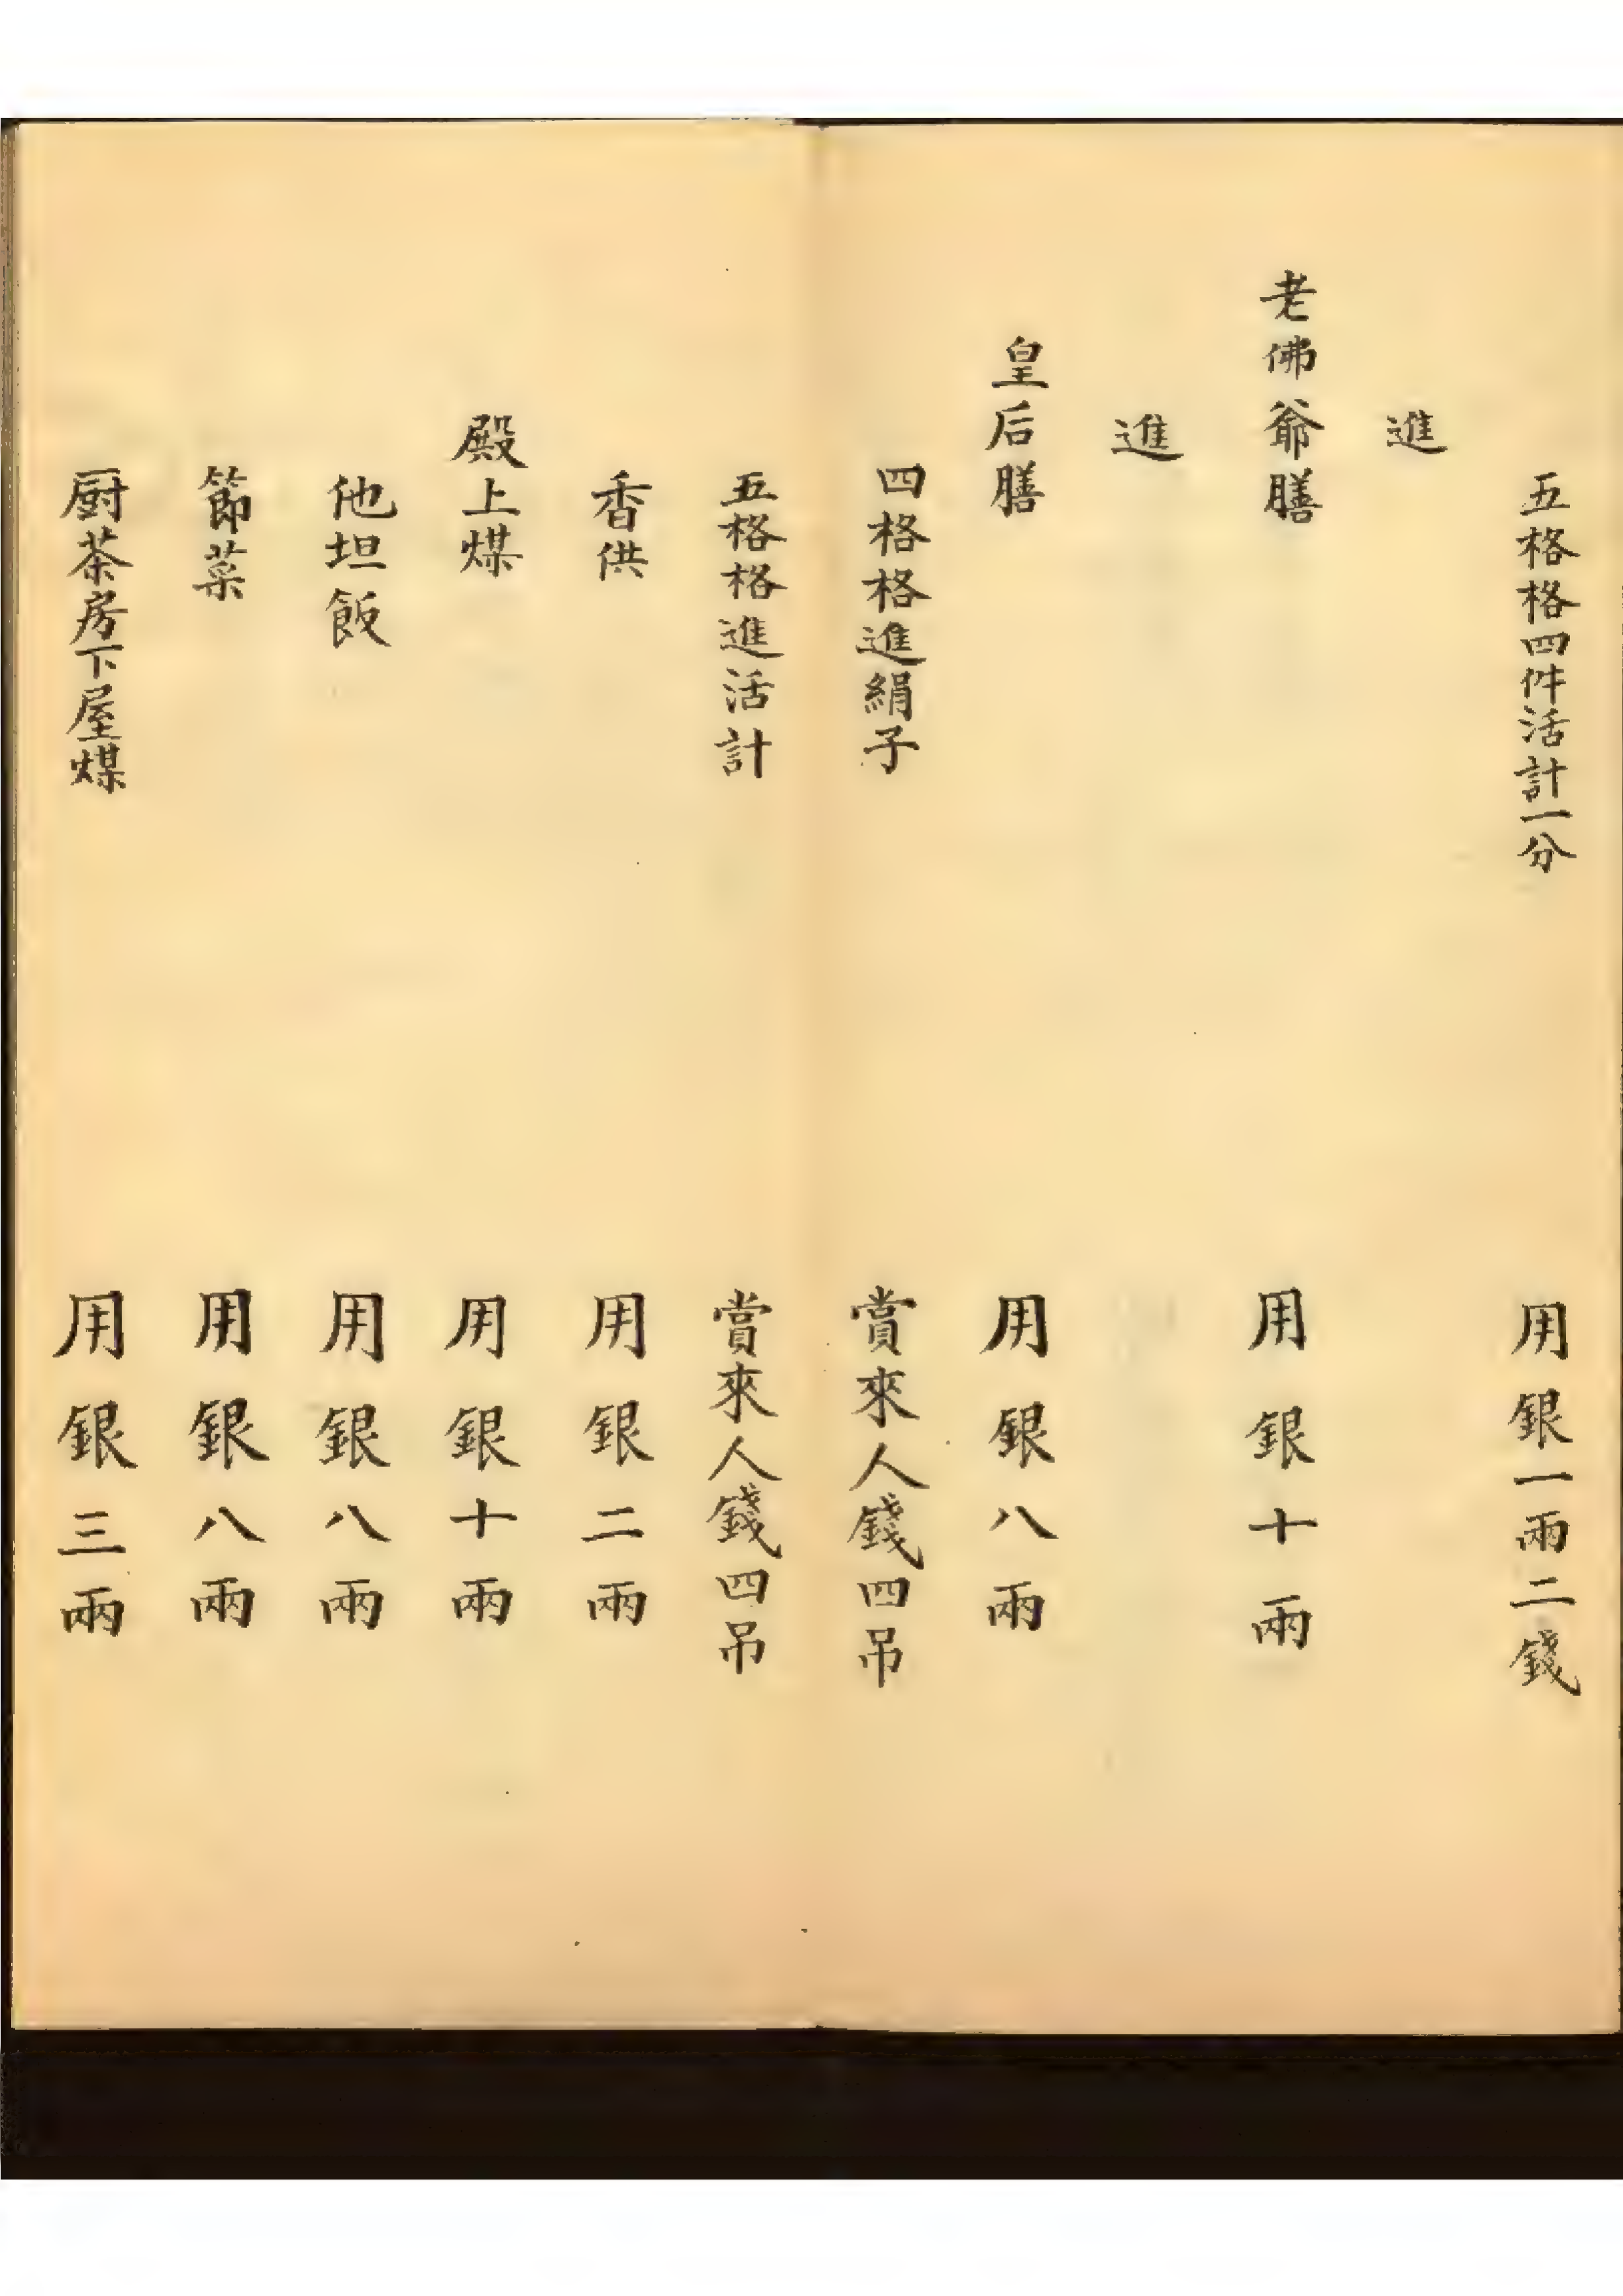 五格格四件活計一分 用銀一兩二錢
進
老佛爺膳 用銀十兩
進
皇后膳 用銀八兩
四格格進絹子 賞來人錢四吊
五格格進活計 賞來人錢四吊
香供 用銀二兩
殿上煤 用銀十兩
他坦飯 用銀八兩
節菜 用銀八兩
厨茶房下屋煤 用銀三兩